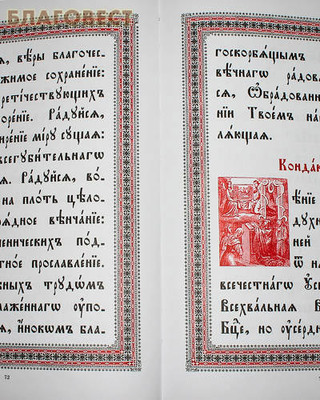 БЛАГОВЕСТ
ѧ, вѣ́ры благочес-
жимое сохране́нїе:
ретїчествующихъ
оре́нїе. Ра́дуйсѧ,
инение мі́ру сꙋщаѧ:
всегуби́тельнагѡ
ѧ. Ра́дуйсѧ, во́-
на пло́ть цѣло-
рѧ́дное вѣнча́нїе:
ченическихъ по́д-
тное прославле́нїе.
жныхъ трудѡ́мъ
лаже́ннагѡ упо-
ѧ, и́нокѡмъ бла-
12
госкорбѧ́щымъ
вѣ́чнагѡ ра́дова
сѧ, Ѡбра́дован
нїи Твое́мъ на
лѧ́ющаѧ.
Конда́к
ѣ́нїе
духи
ней
ѿ на
всече́стнагѡ Оу҆с
Всехва́льная В
Бц҃е, но оу҆се́рди